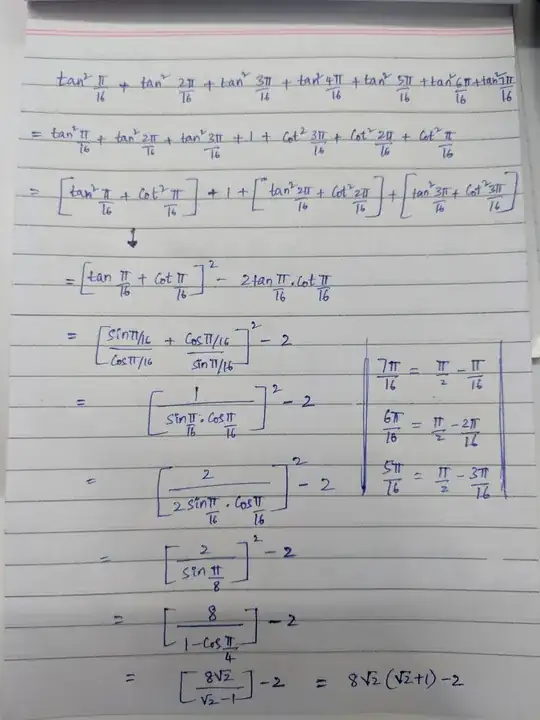 tan² π/16 + tan² 2π/16 + tan² 3π/16 + tan² 4π/16 + tan² 5π/16 + tan² 6π/16 + tan² 7π/16
= tan² π/16 + tan² 2π/16 + tan² 3π/16 + 1 + cot² 3π/16 + cot² 2π/16 + cot² π/16
= [tan² π/16 + cot² π/16] + 1 + [tan² 2π/16 + cot² 2π/16] + [tan² 3π/16 + cot² 3π/16]
↓
= [tan π/16 + cot π/16]² - 2 tan π/16 . cot π/16
= [sin π/16 / cos π/16 + cos π/16 / sin π/16]² - 2
= [1 / sin π/16 . cos π/16]² - 2
= [2 / 2 sin π/16 . cos π/16]² - 2
= [2 / sin π/8]² - 2
= [8 / 1 - cos π/4] - 2
= [8√2 / √2 - 1] - 2 = 8√2 (√2 + 1) - 2
7π/16 = π/2 - π/16
6π/16 = π/2 - 2π/16
5π/16 = π/2 - 3π/16